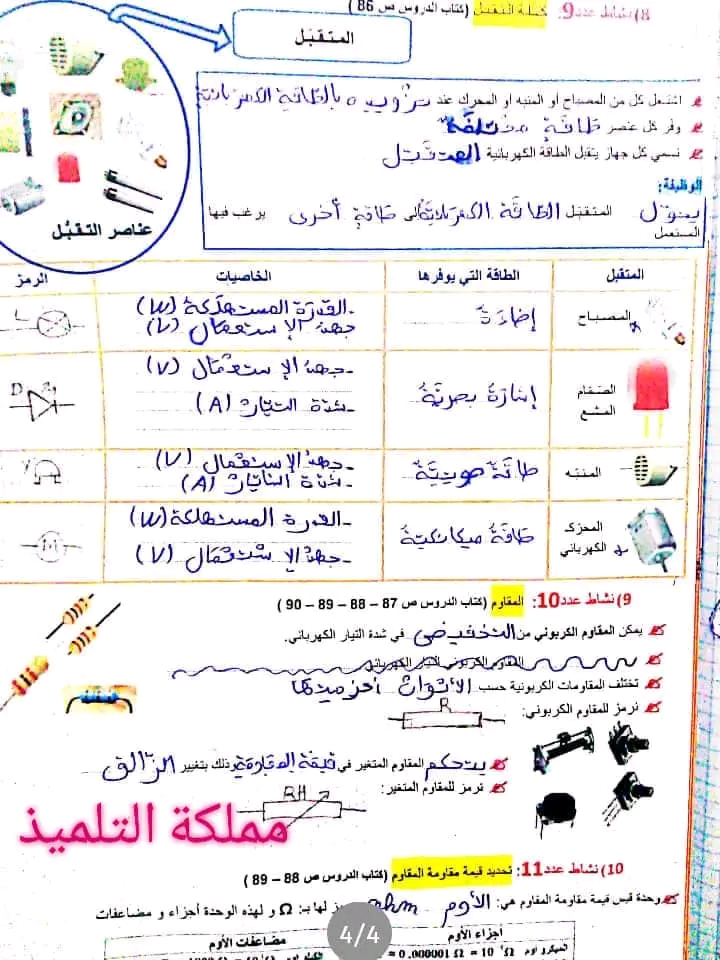 8) نشاط عدد9: كتلة التقبل (كتاب الدروس ص 86)
المتقبل
اشتعل كل من المصباح أو المنبه أو المحرك عند تزويده بالطاقة الكهربائية
وفر كل عنصر طاقة مختلفة
نسمي كل جهاز يتقبل الطاقة الكهربائية المتقبل
الوظيفة:
يحول المتقبل الطاقة الكهربائية إلى طاقة أخرى يرغب فيها
المستعمل
عناصر التقبّل
المتقبل الطاقة التي يوفرها الخاصيات الرمز
المصباح إضاءة - القدرة المستهلكة (W) L
جهد الإستعمال (V)
الصمام المشع إنارة بصرية - جهد الإستعمال (V) D
- شدة التيار (A)
المنبه طاقة صوتية - جهد الإستعمال (V)
- شدة التيار (A)
المحرك الكهربائي طاقة ميكانيكية - القدرة المستهلكة (W) M
- جهد الإستعمال (V)
9) نشاط عدد10: المقاوم (كتاب الدروس ص 87 - 88 - 89 - 90)
يمكن المقاوم الكربوني من التخفيض في شدة التيار الكهربائي.
المقاوم الكربوني التيار الكهربائي
تختلف المقاومات الكربونية حسب الألوان
نرمز للمقاوم الكربوني: R
يتحكم المقاوم المتغير في قيمة المقاومة وذلك بتغيير الزالق
نرمز للمقاوم المتغير: RH
مملكة التلميذ
10) نشاط عدد11: تحديد قيمة مقاومة المقاوم (كتاب الدروس ص 88 - 89)
وحدة قيس قيمة مقاومة المقاوم هي: الأوم ohm لها بـ: Ω و لهذه الوحدة أجزاء و مضاعفات
أجزاء الأوم مضاعفات الأوم
4/4